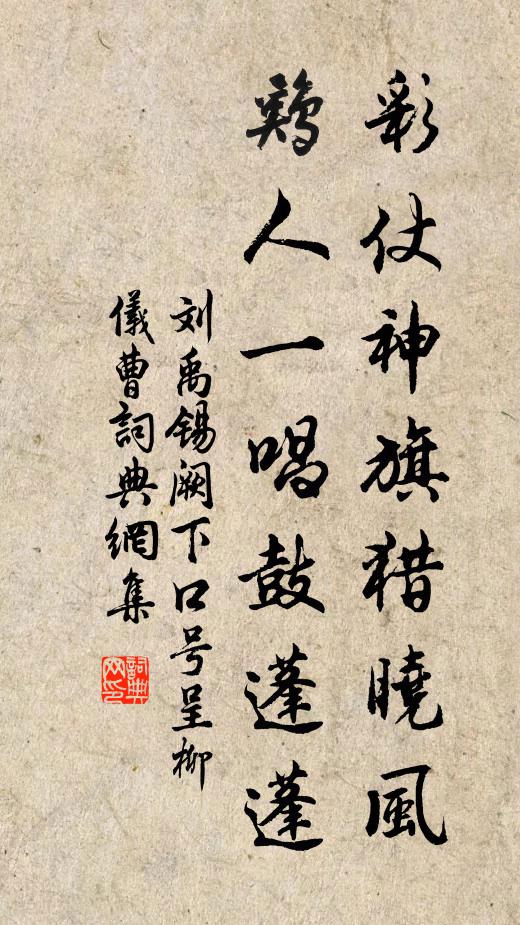 彩仗神旗猎曉風
鷄人一唱鼓蓬蓬
刘禹锡阙下口号呈柳
儀曹詞典網集
詞典网印